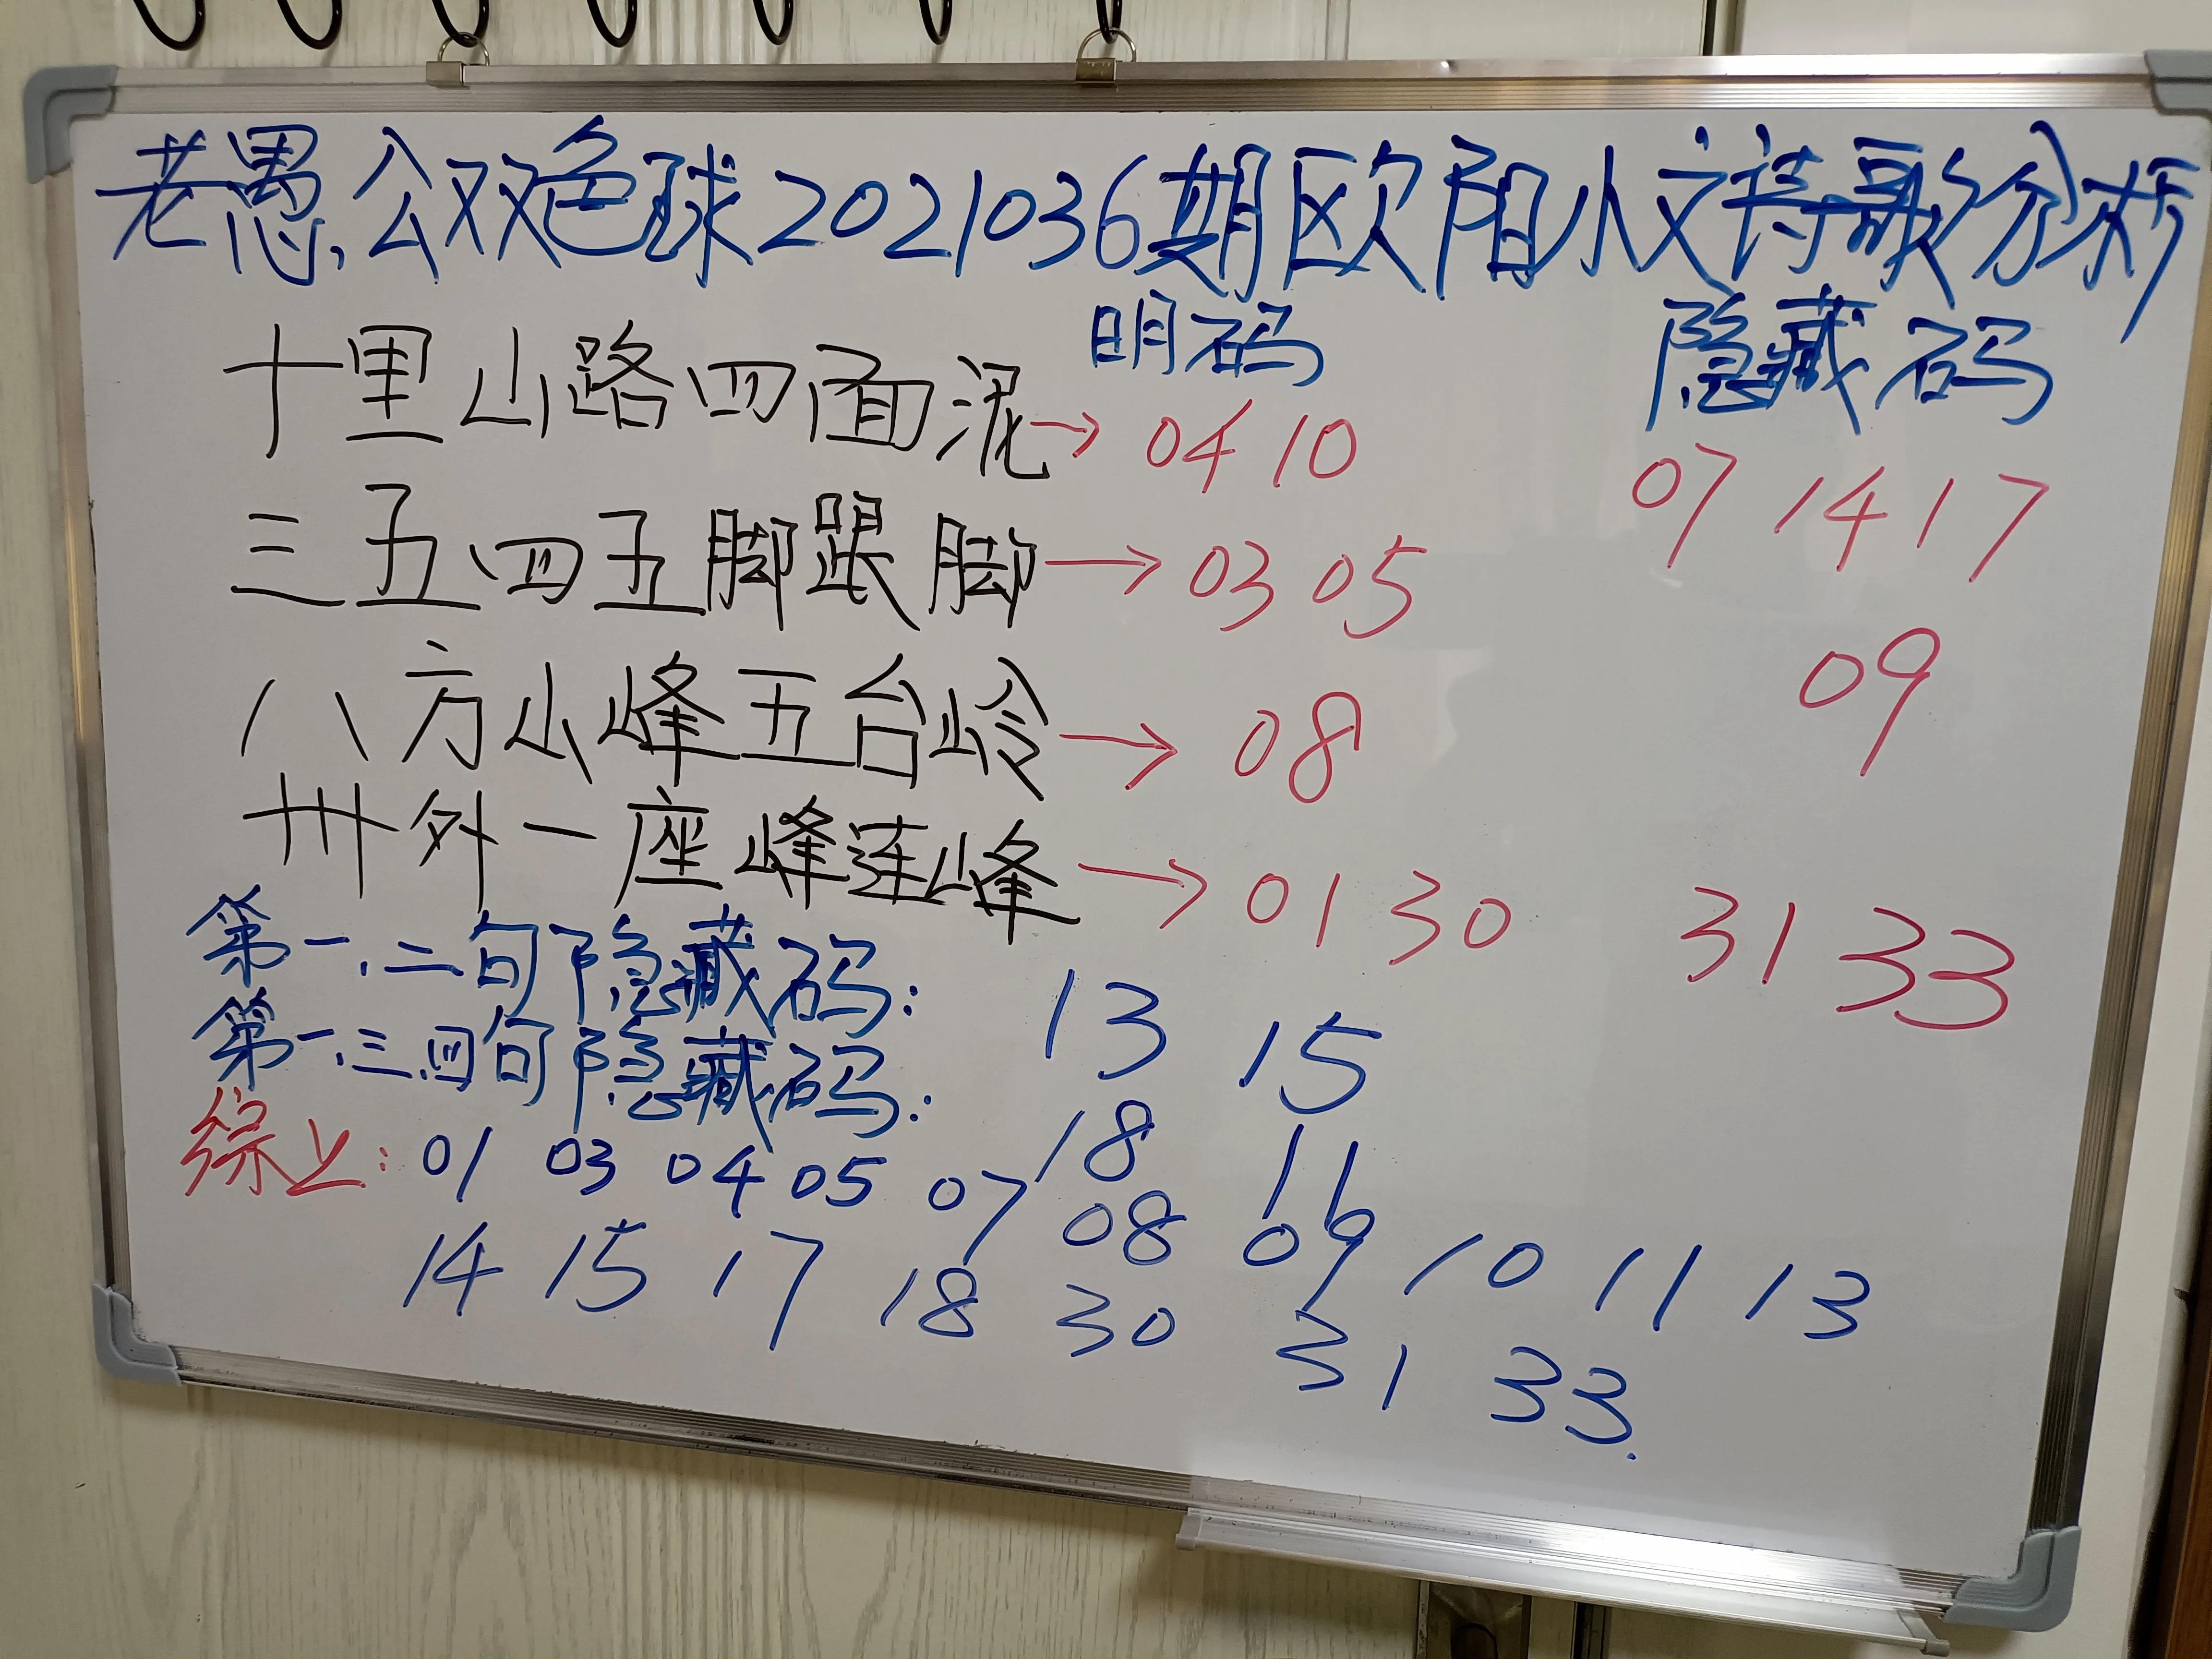 老愚公双色球2021036期欧阳小文诗歌分析
明码 隐藏码
十里山路四面泥→04 10 07 14 17
三五四五脚跟脚→03 05 09
八方山峰五台岭→08
卅外一座峰连峰→01 30 31 33
第一、二句隐藏码: 13 15
第一、三、四句隐藏码: 18 16
综上: 01 03 04 05 07 08 09 10 11 13
14 15 17 18 30 31 33.